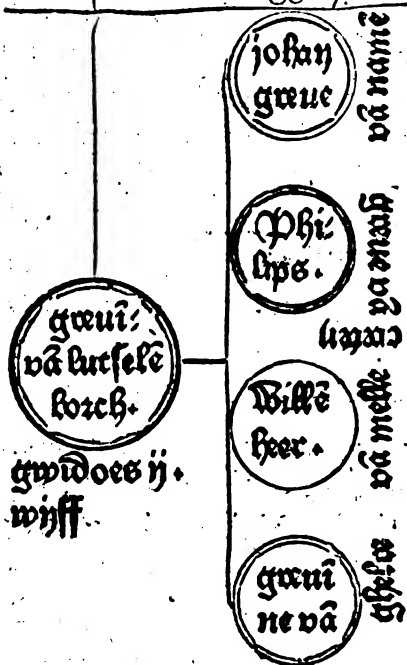 johan
greue
vā namē
Phi:
lips.
graue vā
greuī:
vā lutselē
borch.
gwidoes ij.
wijff.
Willē
heer.
vā melle.
greuī
ne vā
ghelre